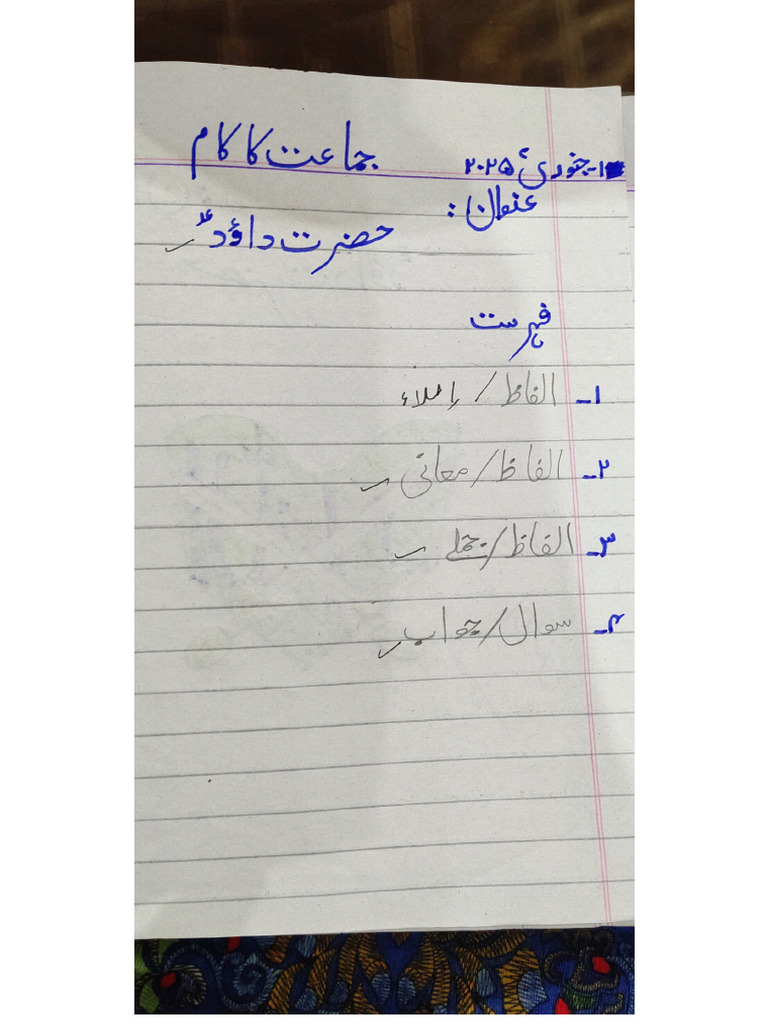 ۱-جنوری ۲۰۲۵ء جماعت کا کام
عنوان:
حضرت داؤدؑ
فہرست
۱- الفاظ / إملاء
۲- الفاظ/معانی
۳- الفاظ/جملے
۴- سوال/جواب